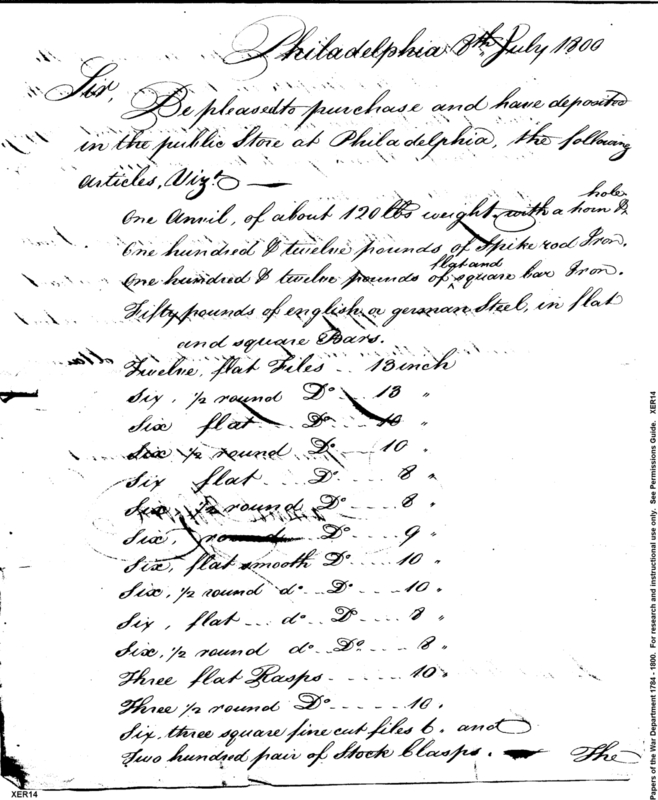 Philadelphia 8th July 1800
Sir,
Be pleased to purchase and have deposited
in the public Store at Philadelphia, the following
articles, Vizt.
hole
One Anvil, of about 120 lbs weight. with a horn &
One hundred & twelve pounds of Spike rod Iron.
flat and
One hundred & twelve pounds of square bar Iron.
Fifty pounds of english or german Steel, in flat
and square Bars.
Twelve, flat Files .. 13 inch
Six, 1/2 round Do .. 13 "
Six flat .... Do .... 10 "
Six 1/2 round Do .. 10 "
Six flat .... Do .... 8 "
Six 1/2 round Do .... 8 "
Six, round Do .... 9 "
Six, flat smooth Do .... 10 "
Six, 1/2 round do .. Do .... 10 "
Six, flat ... do .. Do .... 8 "
Six, 1/2 round do .. Do .... 8 "
Three flat Rasps .... 10 "
Three 1/2 round Do .... 10 "
Six, three square fine cut files 6. and
Two hundred pair of Stock Clasps. The
Papers of the War Department 1784 - 1800. For research and instructional use only. See Permissions Guide. XER14
XER14